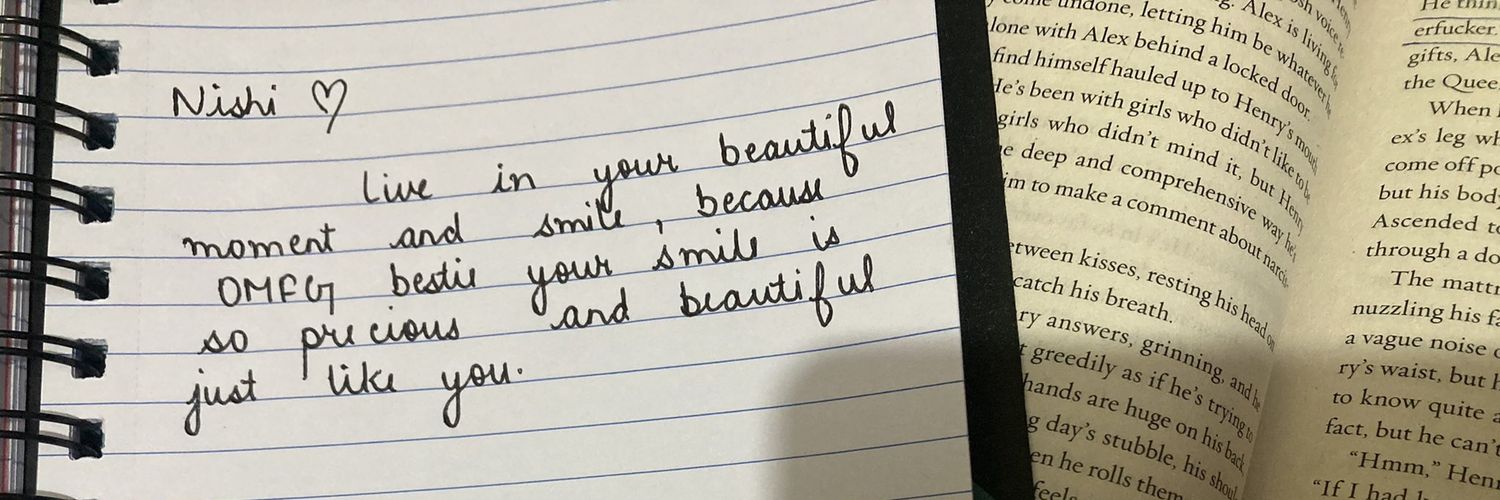 Nishi ♡
live in your beautiful
moment and smile, because
OMFG bestie your smile is
so precious and beautiful
just like you.
come undone, letting him be whatever he
lone with Alex behind a locked door.
find himself hauled up to Henry's mouth
He's been with girls who didn't like to be
girls who didn't mind it, but Henry
deep and comprehensive way he's
him to make a comment about narcis-
etween kisses, resting his head on
catch his breath.
ry answers, grinning, and he
greedily as if he's trying to
hands are huge on his back
g day's stubble, his shoul-
en he rolls them
feels
He thin
erfucker.
gifts, Ale
the Quee
When
ex's leg wh
come off po
but his body
Ascended to
through a do
The mattr
nuzzling his fa
a vague noise
ry's waist, but h
to know quite a
fact, but he can't
"Hmm," Henr
"If I had